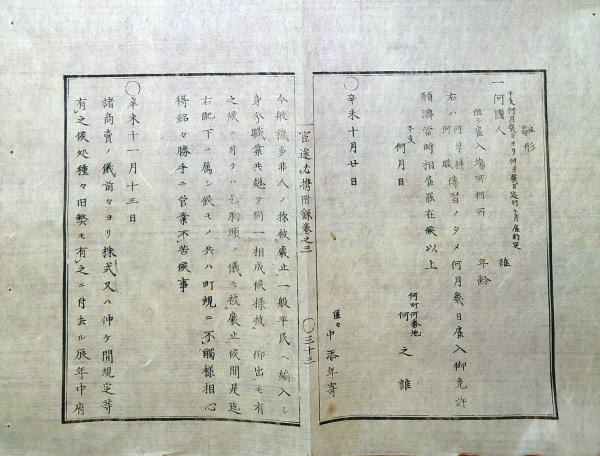 雛形
干支何月幾日ヨリ何月幾日迄何ヶ月雇約定
一何國人 誰
年齢
但シ雇入場所何所
右ハ何業何職傳習ノタメ何月幾日雇入御免許
願濟當時相雇罷在候以上
干支何月日
何町何番地
何之誰
區々
中添年寄
○辛未十月廿日
官途必携附録巻之三 ○三十三
今般穢多非人ノ称被廢止一般平民ヘ編入シ
身分職業共總テ同一相成候様被 仰出モ有
之候ニ付テハ乞胸頭ノ儀モ被廢止候間是迄
右配下ニ属シ候モノ共ハ町規ニ不觸様相心
得銘々勝手ニ営業不苦候事
○辛未十一月十三日
諸商賣ノ儀前々ヨリ株式又ハ仲ヶ間規定等
有之候処種々旧弊モ有之ニ付去ル辰年中府